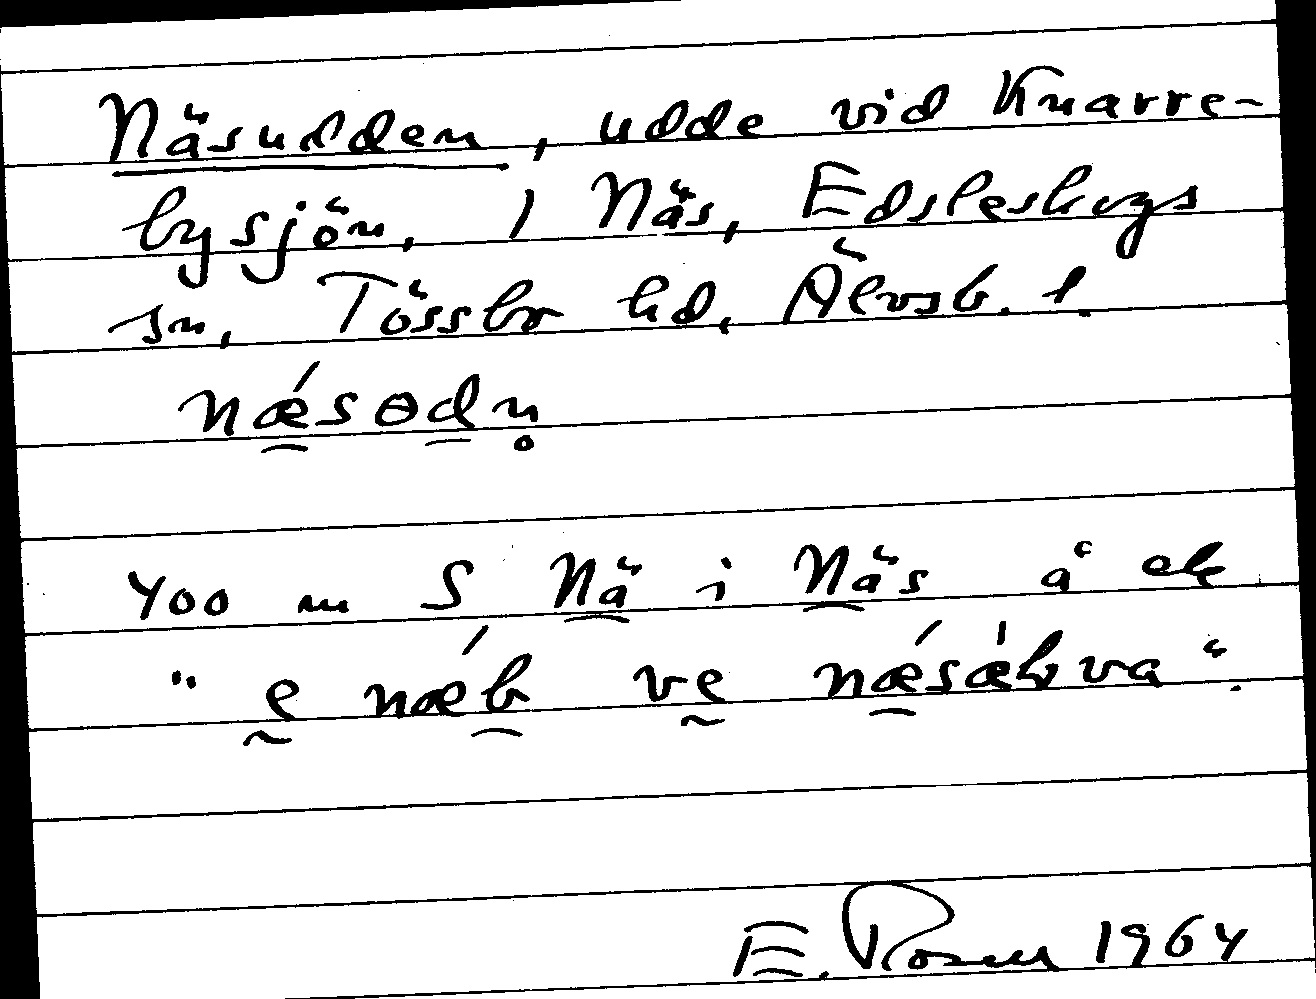 Näsudden, udde vid Knarre-
bysjön, 1 Näs, Edsleskogs
sn, Tössbo hd, Älvsb. l.
nǽsɵdn̥
400 m S Nä i Näs å ek
"e nǽb ve nǽsǽkra".
E. Rosen 1964